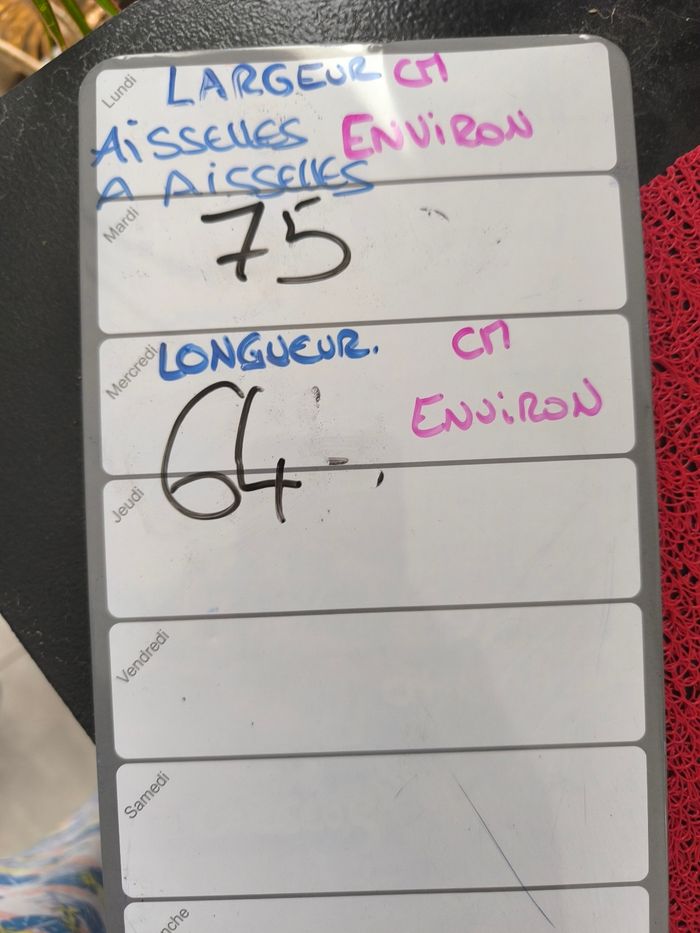 Lundi
LARGEUR CM
AiSSELLES ENViRON
A AiSSELLES
Mardi
75
Mercredi
LONGUEUR. CM
ENViRON
64
Jeudi
Vendredi
Samedi
nche